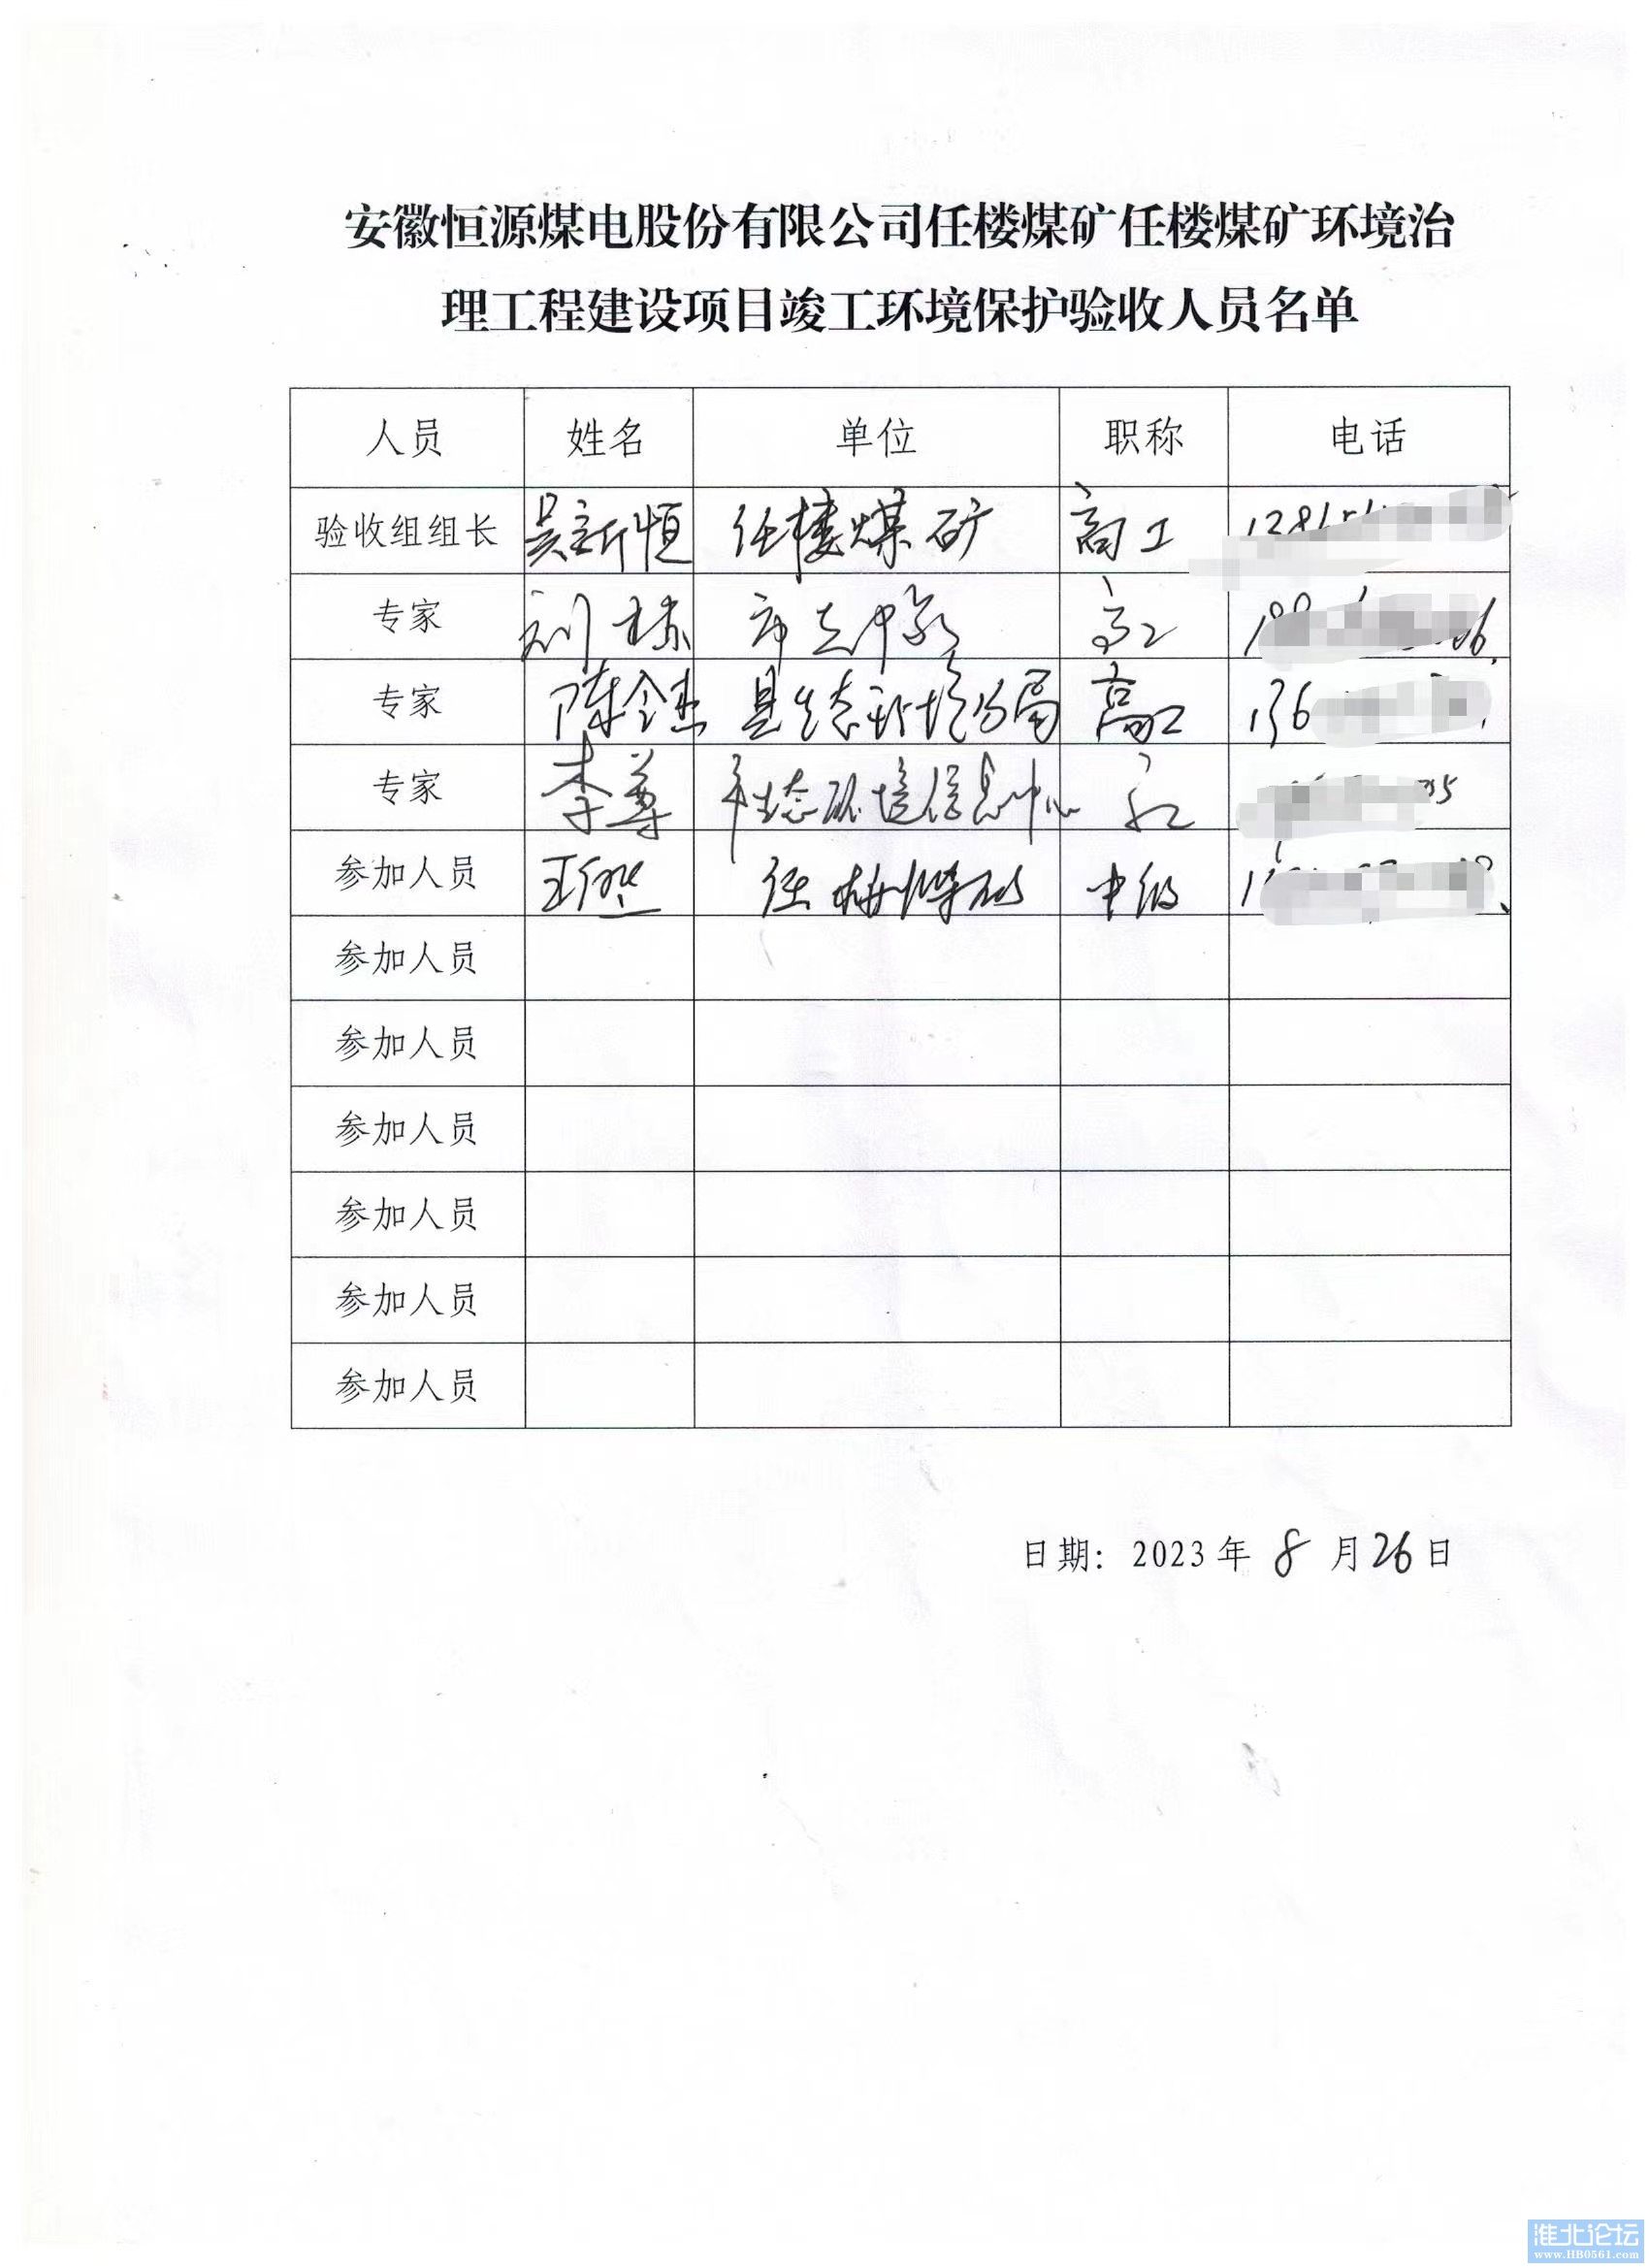 安徽恒源煤电股份有限公司任楼煤矿任楼煤矿环境治
理工程建设项目竣工环境保护验收人员名单
人员 姓名 单位 职称 电话
验收组组长 吴新恒 任楼煤矿 高工
专家 刘 高工
专家 陈金 县生态环境分局 高工 136
专家 李尊 市生态环境信息中心 高工
参加人员 王 任楼煤矿 中级
参加人员
参加人员
参加人员
参加人员
参加人员
参加人员
日期：2023年 8 月 26 日
淮北论坛
www.HB0561.com